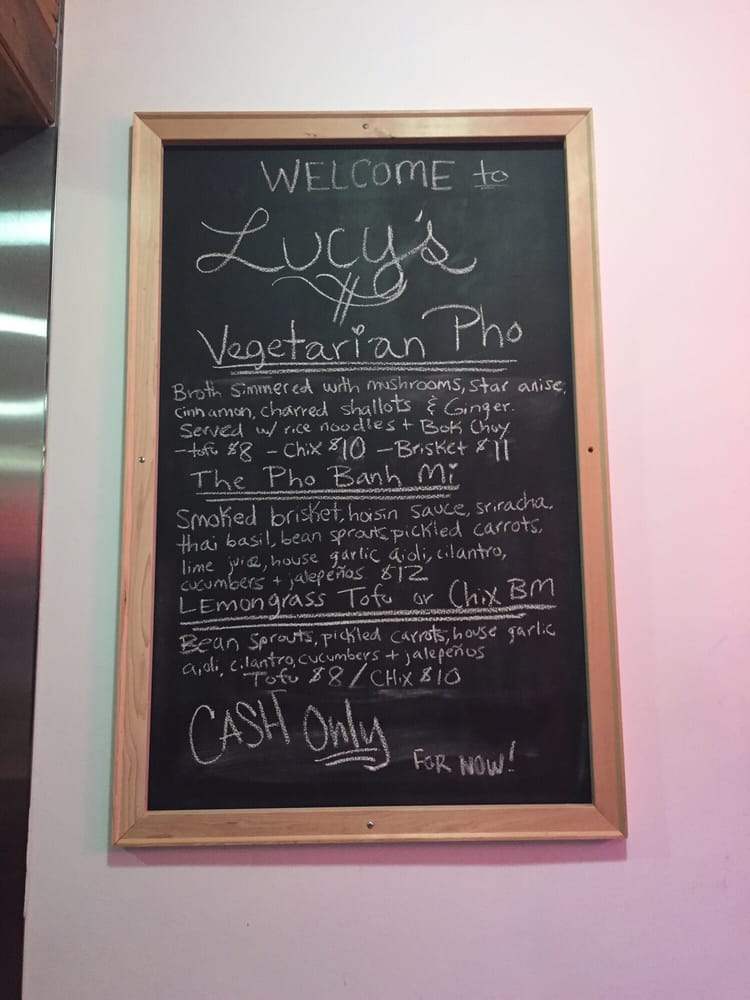 WELCOME to
Lucy's
Vegetarian Pho
Broth simmered with mushrooms, star anise,
cinnamon, charred shallots & Ginger.
Served w/ rice noodles + Bok Choy
-tofu $8 - Chix $10 - Brisket $11
The Pho Banh Mi
Smoked brisket, hoisin sauce, sriracha,
thai basil, bean sprouts, pickled carrots,
lime juice, house garlic aioli, cilantro,
cucumbers + jalepeños $12
LEmongrass Tofu or Chix BM
Bean sprouts, pickled carrots, house garlic
aioli, cilantro, cucumbers + jalepeños
Tofu $8 / CHix $10
CASH Only
FOR NOW!